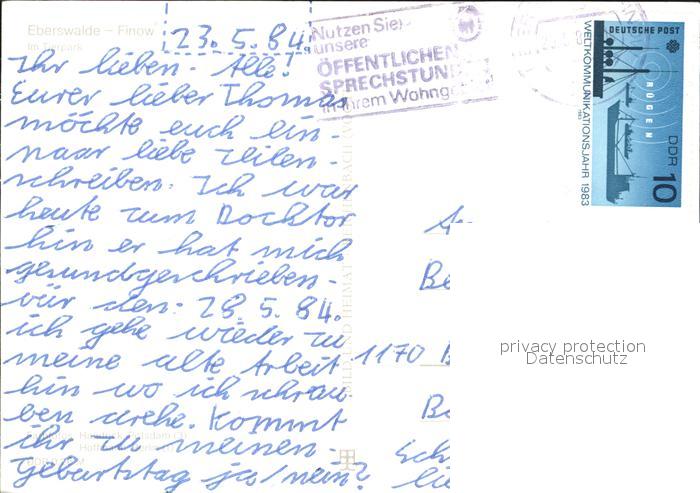 Eberswalde – Finow
Im Tierpark
23.5.84.
Nutzen Sie
unsere
ÖFFENTLICHEN
SPRECHSTUN
in Ihrem Wohnge
DEUTSCHE POST
WELTKOMMUNIKATIONSJAHR 1983
RÜGEN
DDR
10
Ihr lieben Alle!
Eurer lieber Thomas
möchte euch ein-
naar liebe Zeilen-
schreiben. Ich war
heute zum Docktor
hin er hat mich
gesundgeschrieben-
vür den: 28.5.84.
ich gehe wieder zu
meine alte Arbeit
hin wo ich schrau
ben drehe. Kommt
ihr zu meinen-
Geburtstag ja/nein?
A
Be
1170
Be
Sch
li
privacy protection
Datenschutz